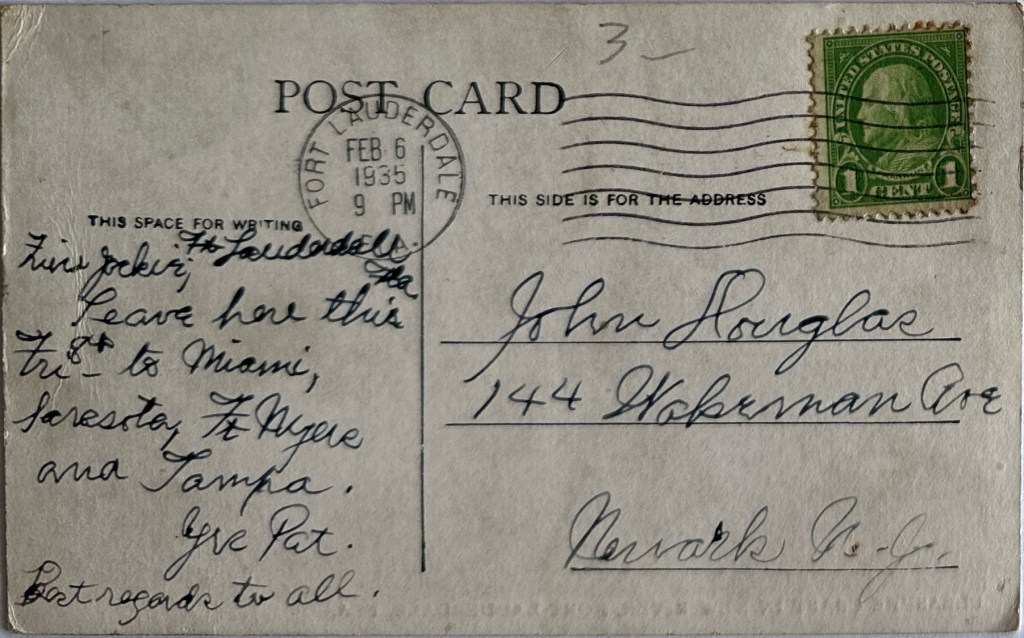 3 -
UNITED STATES POSTAGE
1 CENT 1
POST CARD
FORT LAUDERDALE
FEB 6
1935
9 PM
THIS SIDE IS FOR THE ADDRESS
THIS SPACE FOR WRITING
Ft Lauderdall.
Fla
Leave here this
Fri 8th - to Miami,
Saresota, Ft Myers
and Tampa.
Pat.
Best regards to all.
John Douglas
144 Wakeman Ave
Newark N. J.